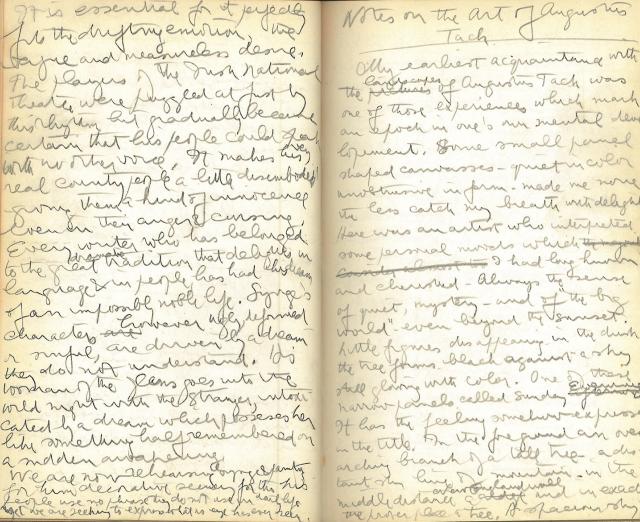 It is essential for it perfectly
fits the drifting emotion, the
vague and measureless desire.
The players of the Irish National
Theatre were puzzled at first by
this rhythm but gradually became
certain that his people could speak
with no other voice. It makes his
real country people a little disembodied
giving them a kind of innocence
even in their anger & cursing.
Every writer who has belonged
to the great dramatic tradition that delights in
language & in people has had this dream
of an impossibly noble life. Synge's
characters however ugly, deformed
or sinful, are driven by a dream
they do not understand. His
woman of the Glens goes into the
wild night with the stranger, intoxi
cated by a dream which possesses her
like something half remembered on
a sudden awakening.
We are now rehearsing
for him decorative scenery for the
people use no phrase they do not use in daily life
yet we are seeking to express what is
Notes on the Art of Augustus
Tack
My earliest acquaintance with
the landscapes of Augustus Tack was
one of those experiences which mark
an epoch in one's own mental deve
lopment. Some small panel
shaped canvasses - quiet in color
unobtrusive in form - made me none
the less catch my breath with delight
Here was an artist who interpreted
some personal moods which
I had long known
and cherished - Always the sense
of quiet, mystery - and of "the big
world" even beyond the sunset.
Little figures disappearing in the dusk
the tree forms black against a sky
still glowing with color. One of these
narrow panels called Sunday Evening
It has the feeling somehow expressed
in the title. In the foreground an over
arching branch of a tall tree - a dis
tant sky line of mountain - in the
middle distance
and in exactly
the proper place a tree. A spacious sky